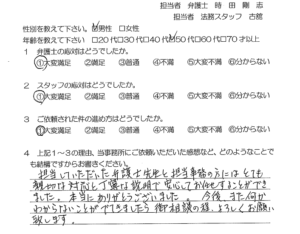 担当弁護士 時田 剛志
担当者 法務スタッフ 古舘
性別を教えて下さい。☑男性 □女性
年齢を教えて下さい □20代□30代□40代☑50代□60代□70才以上
1 弁護士の応対はどうでしたか。
①大変満足 ②満足 ③普通 ④不満 ⑤大変不満 ⑥分からない
2 スタッフの応対はどうでしたか。
①大変満足 ②満足 ③普通 ④不満 ⑤大変不満 ⑥分からない
3 ご依頼された件の進め方はどうでしたか。
①大変満足 ②満足 ③普通 ④不満 ⑤大変不満 ⑥分からない
4 上記1~3の理由、当事務所にご依頼いただいた感想など、どのようなことで
も結構ですからお書きください。
担当していただいた弁護士先生と担当事務の方にはとても
親切な対応と丁寧な説明で安心してお任せすることができ
ました。本当にありがとうございました。今後、また何か
わからないことがでてきましたら御相談の程、よろしくお願い
致します。